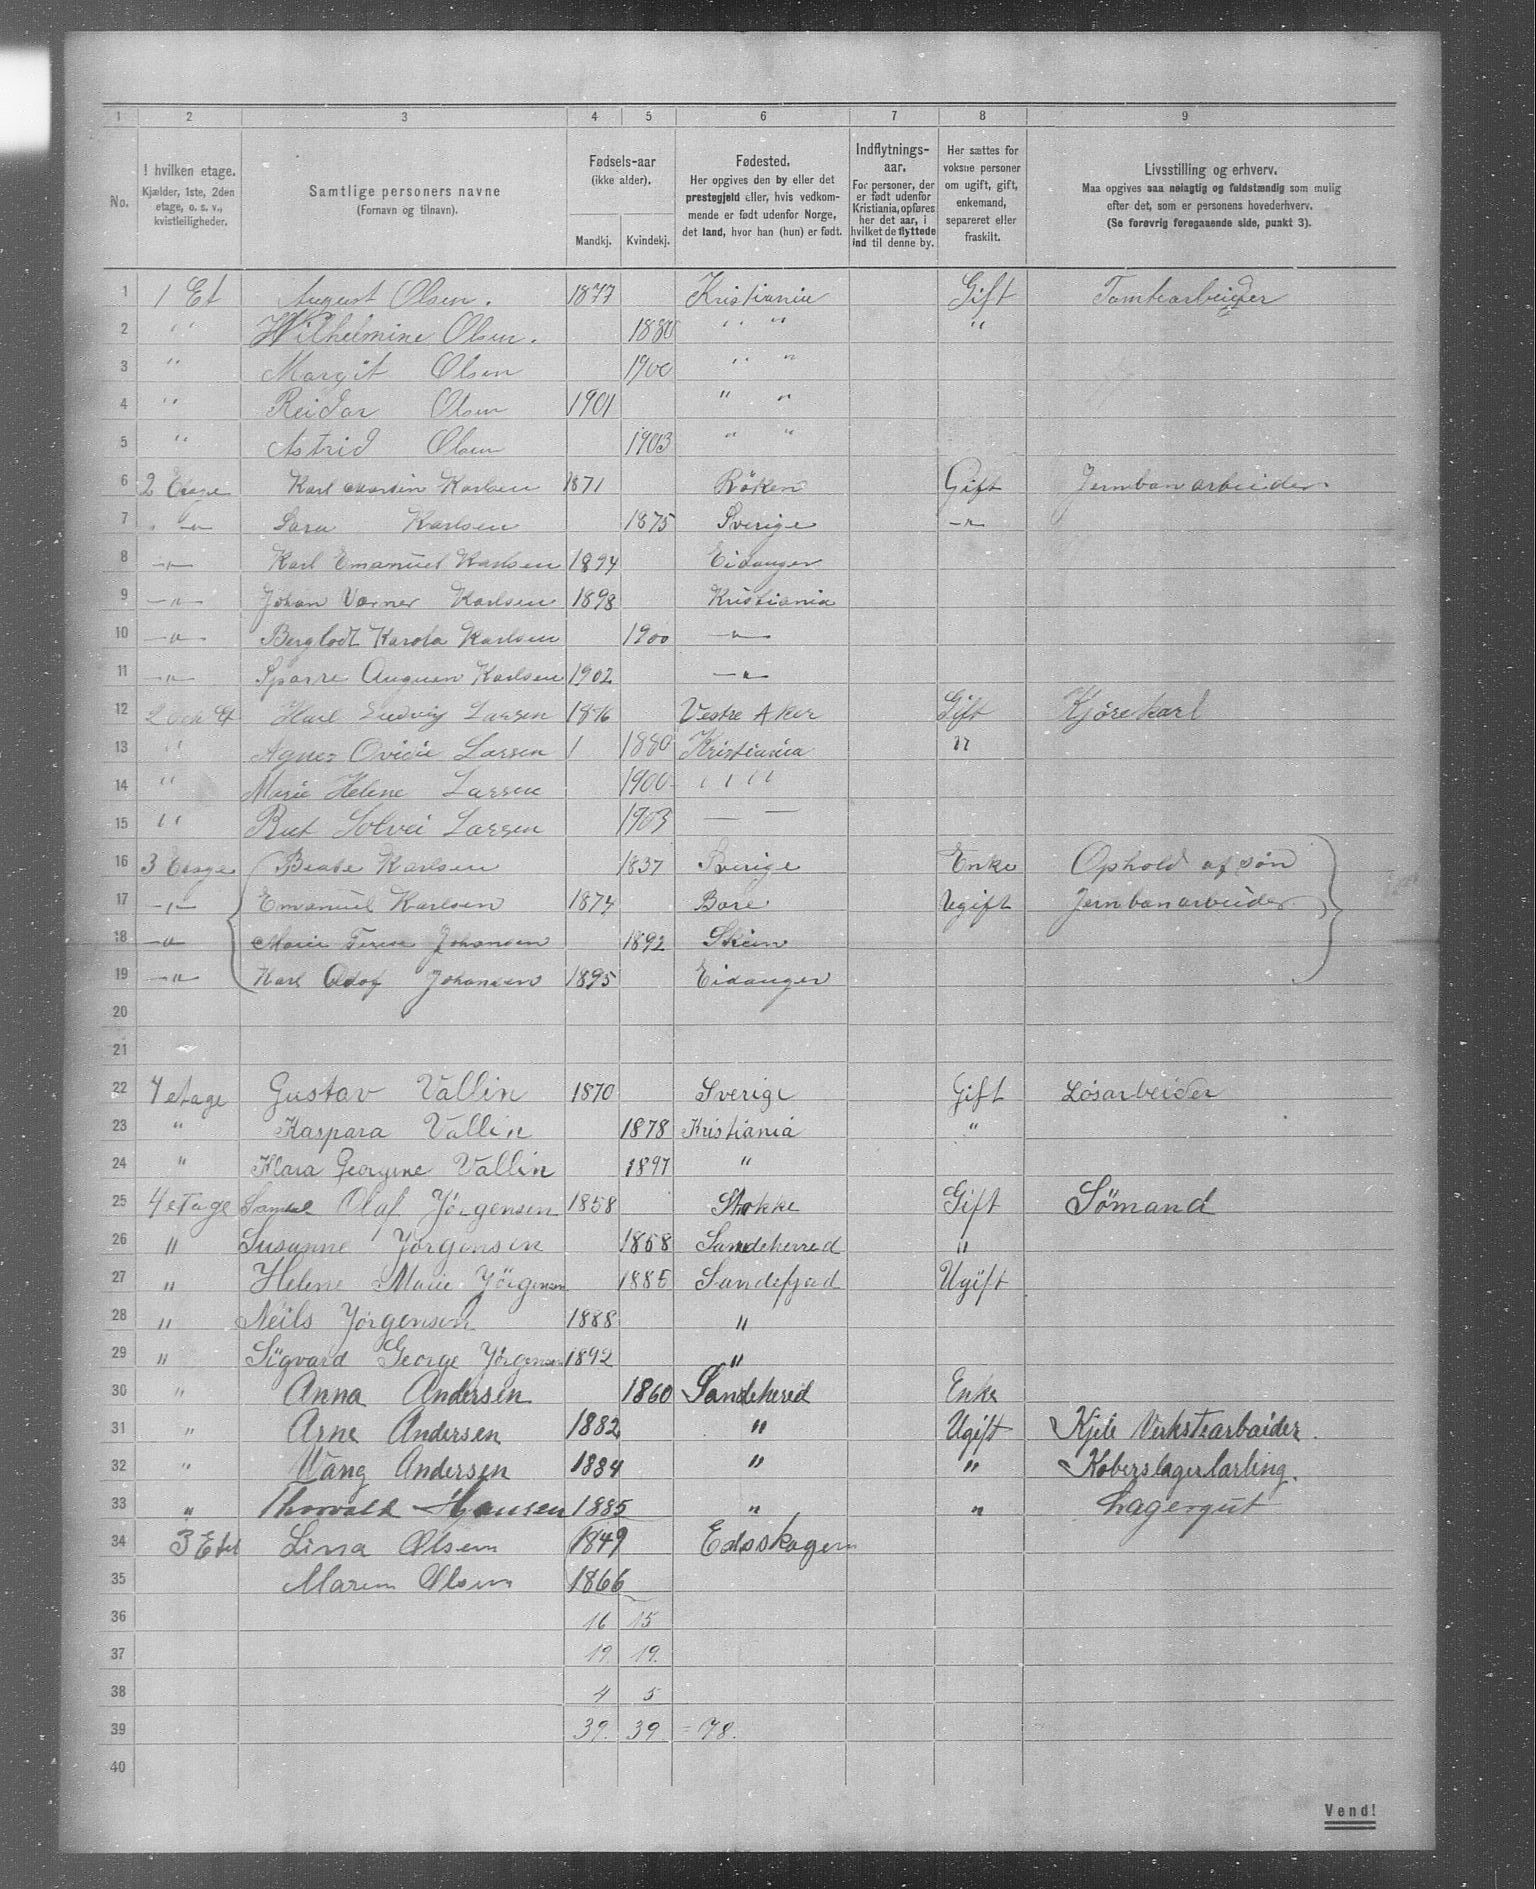 1 2 3 4 5 6 7 8 9
No.
I hvilken etage.
Kjælder, 1ste, 2den
etage, o. s. v.,
kvistleiligheder.
Samtlige personers navne
(Fornavn og tilnavn).
Fødsels-aar
(ikke alder).
Mandkj. Kvindekj.
Fødested.
Her opgives den by eller det
prestegjeld eller, hvis vedkom-
mende er født udenfor Norge,
det land, hvor han (hun) er født.
Indflytnings-
aar.
For personer, der
er født udenfor
Kristiania, opføres
her det aar, i
hvilket de flyttede
ind til denne by.
Her sættes for
voksne personer
om ugift, gift,
enkemand,
separeret eller
fraskilt.
Livsstilling og erhverv.
Maa opgives saa nøiagtig og fuldstændig som mulig
efter det, som er personens hovederhverv.
(Se forøvrig foregaaende side, punkt 3).
1 1 Et August Olsen. 1877 Kristiania Gift Tomtearbeider
2 " Wilhelmine Olsen. 1880 " " "
3 " Margit Olsen 1900 " "
4 " Reidar Olsen 1901 " "
5 " Astrid Olsen 1903 " "
6 2 Etage Karl Karlsen 1871 Röken Gift Jernbanarbeider
7 " Sara Karlsen 1875 Sverige —"—
8 —"— Karl Emanuel Karlsen 1894 Eidanger
9 —"— Johan Varner Karlsen 1898 Kristiania
10 —"— Karola Karlsen 1900 —"—
11 —"— Sparre Karlsen 1902 —"—
12 2 Et Ludvig Larsen 1876 Vestre Aker Gift Kjørekarl
13 " Agnes Larsen 1 1880 Kristiania "
14 " Marie Helene Larsen 1900 " "
15 " Rut Solvei Larsen 1903 — —
16 3 Etage Beate Karlsen 1837 Sverige Enke Ophold af søn
17 —"— Emanuel Karlsen 1874 Ugift Jernbanarbeider
18 —"— Marie Johansen 1892 Skien
19 —"— Karl Johansen 1895 Eidanger
20
21
22 4 etage Gustav Vallin 1870 Sverige Gift Løsarbeider
23 " Kaspara Vallin 1878 Kristiania "
24 " Klara Georgine Vallin 1897 "
25 4 etage Samuel Olaf Jörgensen 1858 Stokke Gift Sömand
26 " Susanne Jörgensen 1858 Sandeherred "
27 " Helene Marie Jörgensen 1885 Sandefjord Ugift
28 " Neils Jörgensen 1888 "
29 " Sigvard George Jörgensen 1892 "
30 " Anna Andersen 1860 Sandehered Enke
31 " Arne Andersen 1882 " Ugift Verkstearbaider.
32 " Vang Andersen 1884 " " Koberslagerlarling.
33 " Thorvald Hansen 1885 " " Lagergut
34 3 Lina Olsen 1849 Edsskogen
35 Maren Olsen 1866
36 16 15
37 19. 19.
38 4 5
39 39. 39 = 78.
40
Vend!